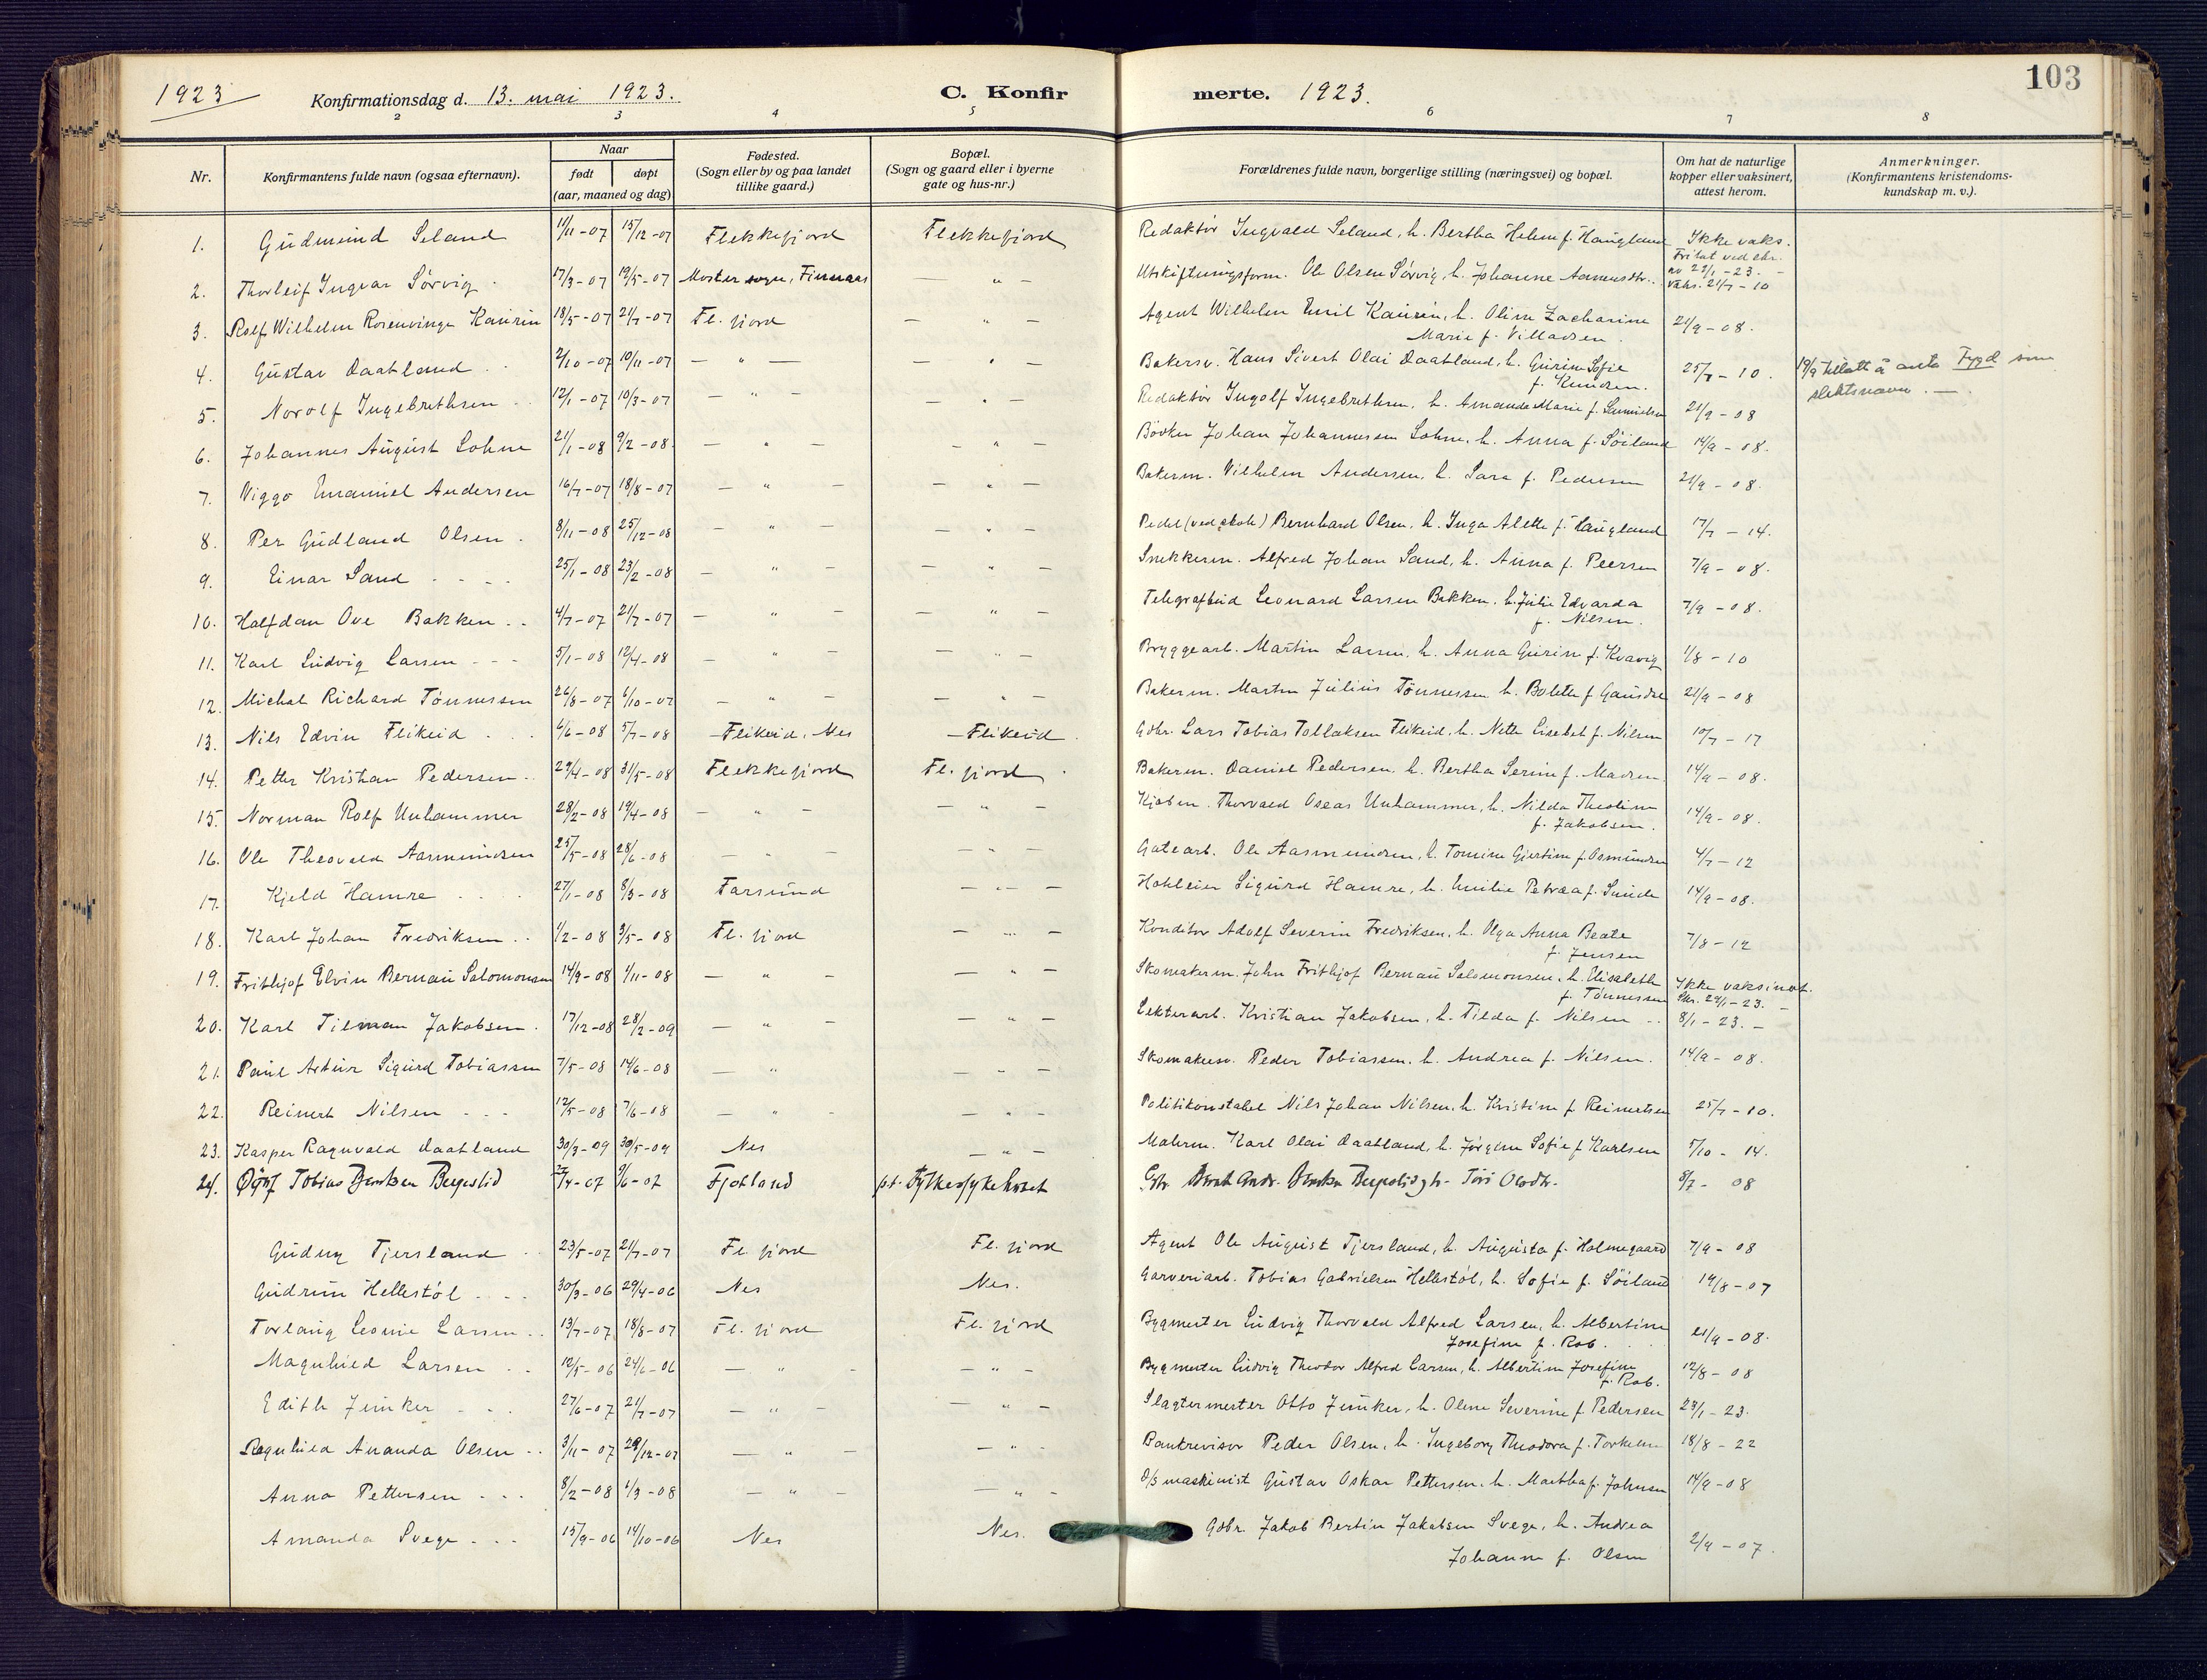 103
1923 Konfirmationsdag d. 13. mai 1923. C. Konfirmerte. 1923.
2 3 4 5 6 7 8
Nr. Konfirmantens fulde navn (ogsaa efternavn). Naar født døpt (aar, maaned og dag) Fødested. (Sogn eller by og paa landet tillike gaard.) Bopæl. (Sogn og gaard eller i byerne gate og hus-nr.) Forældrenes fulde navn, borgerlige stilling (næringsvei) og bopæl. Om hat de naturlige kopper eller vaksinert, attest herom. Anmerkninger. (Konfirmantens kristendoms-kundskap m. v.).
1. Gudmund Seland 11/11-07 15/12-07 Flekkefjord Flekkefjord Redaktør Ingvald Seland, h. Bertha Helene f. Haugland Ikke vaks. Fritat ved
2. Thorleif Ingvar Sørvig 17/3-07 19/5-07 Moster sogn, Finnaas — " — Utskiftningsform. Ole Olsen Sørvig, h. Johanne vaks. 21/7-10
3. Rolf Wilhelm Rosenvinge Kaurin 18/5-07 21/7-07 Fl. fjord — " — Agent Wilhelm Emil Kaurin, h. Oline Zacharine Marie f. Villadsen 21/9-08.
4. Gustav Daatland 2/10-07 10/11-07 — " — — " — Bakersv. Hans Sivert Olai Daatland, h. Gurine Sofie f. Knudsen. 25/7-10. 19/9 tillatt å anta Tygd som slektsnavn.
5. Norolf Ingebrethsen 12/1-07 10/3-07 — " — — " — Redaktør Ingolf Ingebrethsen, h. Amanda Marie f. Samuelsen 21/9-08
6. Johannes August Lohne 21/1-08 9/2-08. — " — — " — Bødker Johan Johannesen Lohne, h. Anna f. Søiland 14/9-08.
7. Viggo Emanuel Andersen 16/7-07 18/8-07 — " — — " — Bakerm. Vilhelm Andersen, h. Sara f. Pedersen 21/9-08.
8. Per Gudland Olsen 8/11-08 25/12-08 — " — — " — Pedel (ved skole) Bernhard Olsen, h. Inga Alette f. Haugland 17/7-14.
9. Einar Sand 25/1-08 23/2-08 — " — — " — Snekkerm. Alfred Johan Sand, h. Anna f. Peersen 7/9-08.
10. Halfdan Ove Bakken 4/7-07 21/7-07 — " — — " — Telegrafbud Leonard Larsen Bakken, h. Julie Edvarda f. Nilsen. 7/9-08.
11. Karl Ludvig Larsen 5/1-08 12/4-08 — " — — " — Bryggearb. Martin Larsen, h. Anna Gurine f. Kvavig 1/8-10
12. Michal Richard Tønnessen 26/8-07 6/10-07 — " — — " — Bakerm. Martin Julius Tønnessen h. Bolette f. Gausdal 21/9-08
13. Nils Edvin Flikeid 6/6-08 5/7-08 Flikeid, Nes Flikeid Gdbr. Lars Tobias Tollaksen Flikeid, h. Nette Lisebet f. Nilsen 10/7-17
14. Petter Kristian Pedersen 29/4-08 31/5-08 Flekkefjord Fl. fjord Bakerm. Daniel Pedersen, h. Bertha Serine f. Madsen 14/9-08.
15. Norman Rolf Unhammer 28/2-08 19/4-08 — " — — " — Kjøbm. Thorvald Oseas Unhammer, h. Nilda Theoline f. Jakobsen. 14/9-08.
16. Ole Theovald Aasmundsen 25/5-08 28/6-08 — " — — " — Gatearb. Ole Aasmundsen, h. Tomine Gjertine f. Osmundsen 4/7-12
17. Kjeld Hamre 27/1-08 8/3-08 Farsund — " — Hotleier Sigurd Hamre, h. Emilie Petræa f. Sunde 14/9-08.
18. Karl Johan Fredriksen 1/2-08 3/5-08 Fl. fjord — " — Konditor Adolf Severin Fredriksen, h. Olga Anna Beate f. Jensen 7/8-12
19. Frithjof Elvin Bernau Salomonsen 14/9-08 1/11-08 — " — — " — Skomakerm. John Frithjof Bernau Salomonsen, h. Elisabeth f. Tønnessen Ikke vaksinert. Skr. 24/1-23.
20. Karl Tilman Jakobsen 17/12-08 28/2-09 — " — — " — Kristian Jakobsen, h. Tilda f. Nilsen 8/1-23.
21. Paul Artur Sigurd Tobiassen 7/5-08 14/6-08 — " — — " — Skomakersv. Peder Tobiassen, h. Andrea f. Nilsen. 14/9-08.
22. Reinert Nilsen 12/5-08 7/6-08 — " — — " — Politikonstabel Nils Johan Nilsen, h. Kristine f. Reinertsen 25/7-10.
23. Kasper Ragnvald Daatland 30/3-09 30/5-09 Nes — " — Malerm. Karl Olai Daatland, h. Jørgine Sofie f. Karlsen 5/10-14.
24. Tobias Berntsen Bergslid 22/4-07 9/6-07 Fjotland p.t. Fylkessykehuset Gbr. 8/7-08
Gudny Tjersland 23/5-07 21/7-07 Fl. fjord Fl. fjord Agent Ole August Tjersland, h. Augusta f. Holmegaard 7/9-08
Gudrun Hellestøl 30/3-06 29/4-06 Nes Nes. Garveriarb. Tobias Gabrielsen Hellestøl, h. Sofie f. Søiland 19/8-07
Torlaug Leonie Larsen 13/7-07 18/8-07 Fl. fjord Fl. fjord Bygmester Ludvig Thorvald Alfred Larsen, h. Albertine Josefine f. Rob. 21/9-08.
Magnhild Larsen 12/5-06 24/6-06 — " — — " — Bygmester Ludvig Theodor Alfred Larsen, h. Albertine Josefine f. Rob. 12/8-08
Edith Junker 27/6-07 21/7-07 — " — — " — Slagtermester Otto Junker, h. Olene Severine f. Pedersen 23/1-23.
Ragnhild Ananda Olsen 3/11-07 29/12-07 — " — — " — Bankrevisor Peder Olsen, h. Ingeborg Theodora f. Torkelsen 18/8-22
Anna Pettersen 8/2-08 1/3-08 — " — — " — D/S maskinist Gustav Oskar Pettersen, h. Martha f. Johnsen 14/9-08
Amanda Svege 15/9-06 14/10-06 Nes Nes. Gdbr. Jakob Bertin Jakobsen Svege, h. Andrea Johanne f. Olsen 2/9-07.